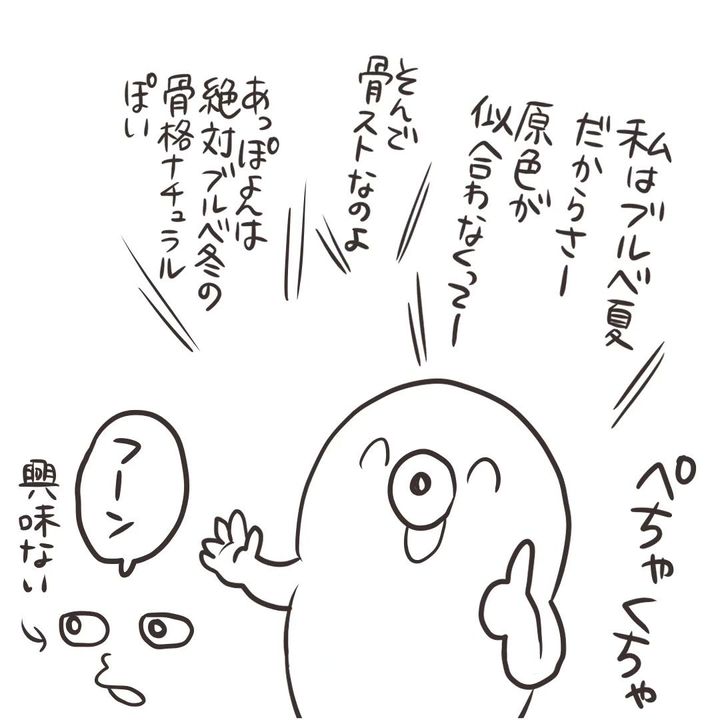 私はブルべ夏
だからさー
原色が
似合わなくってー
そんで
骨ストなのよ
あっぽよんは
絶対ブルべ冬の
骨格ナチュラル
ぽい
ぺちゃくちゃ
フーン
興味ない